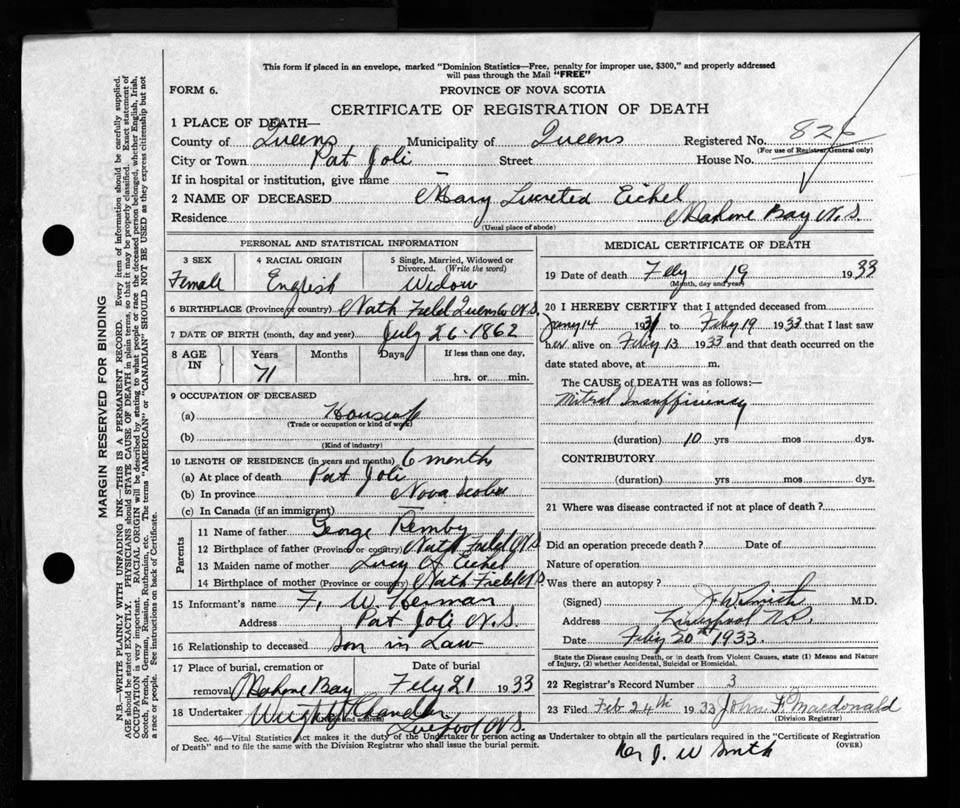 This form if placed in an envelope, marked "Dominion Statistics—Free, penalty for improper use, $300," and properly addressed
will pass through the Mail "FREE"
FORM 6.
PROVINCE OF NOVA SCOTIA
CERTIFICATE OF REGISTRATION OF DEATH
1 PLACE OF DEATH—
County of Queens Municipality of Queens Registered No. 826
(For use of Registrar General only)
City or Town Pat Joli Street House No.
If in hospital or institution, give name —
2 NAME OF DECEASED Mary Eichel
Residence Mahone Bay N.S.
(Usual place of abode)
PERSONAL AND STATISTICAL INFORMATION
3 SEX 4 RACIAL ORIGIN 5 Single, Married, Widowed or
Divorced. (Write the word)
Female English Widow
6 BIRTHPLACE (Province or country) Nath Field Queens Co N.S.
7 DATE OF BIRTH (month, day and year) July 26-1862
8 AGE IN Years Months Days If less than one day,
71 hrs. or min.
9 OCCUPATION OF DECEASED
(a)
(Trade or occupation or kind of work)
(b)
(Kind of industry)
10 LENGTH OF RESIDENCE (in years and months) 6 months
(a) At place of death Pat Joli
(b) In province Nova Scotia
(c) In Canada (if an immigrant) —
Parents
11 Name of father George
12 Birthplace of father (Province or country) Nath Field N.S.
13 Maiden name of mother Lucy A Eichel
14 Birthplace of mother (Province or country) Nath Field N.S.
15 Informant's name F. W. Herman
Address Pat Joli N.S.
16 Relationship to deceased Son in Law
17 Place of burial, cremation or Date of burial
removal Mahone Bay Feby 21 1933
18 Undertaker Wright Chandler
Name and address Liverpool N.S.
MEDICAL CERTIFICATE OF DEATH
19 Date of death Feby 19 1933
(Month, day and year)
20 I HEREBY CERTIFY that I attended deceased from
Jany 14 1931 to Feby 19 1933 that I last saw
her alive on Feby 13 1933 and that death occurred on the
date stated above, at m.
The CAUSE OF DEATH was as follows:—
Mitral Insufficiency
(duration) 10 yrs mos dys.
CONTRIBUTORY
(duration) yrs mos dys.
21 Where was disease contracted if not at place of death?
Did an operation precede death? Date of
Nature of operation
Was there an autopsy?
(Signed) J. W. Smith M.D.
Address Liverpool N.S.
Date Feby 20th 1933.
State the Disease causing Death, or in death from Violent Causes, state (1) Means and Nature
of Injury, (2) whether Accidental, Suicidal or Homicidal.
22 Registrar's Record Number 3
23 Filed Feb 24th 1933 John F. Macdonald
(Division Registrar)
Sec. 46—Vital Statistics Act makes it the duty of the Undertaker or person acting as Undertaker to obtain all the particulars required in the "Certificate of Registration
of Death" and to file the same with the Division Registrar who shall issue the burial permit.
(OVER)
Per J. W Smith
MARGIN RESERVED FOR BINDING
N.B.—WRITE PLAINLY WITH UNFADING INK—THIS IS A PERMANENT RECORD. Every item of information should be carefully supplied.
AGE should be stated EXACTLY. PHYSICIANS should STATE CAUSE OF DEATH in plain terms, so that it may be properly classified. Exact statement of
OCCUPATION is very important. RACIAL ORIGIN will be described by stating to what people or race the deceased person belonged, whether English, Irish,
Scotch, French, German, Russian, Ruthenian, etc. The terms "AMERICAN" or "CANADIAN" SHOULD NOT BE USED as they express citizenship but not
a race or people. See instructions on back of Certificate.